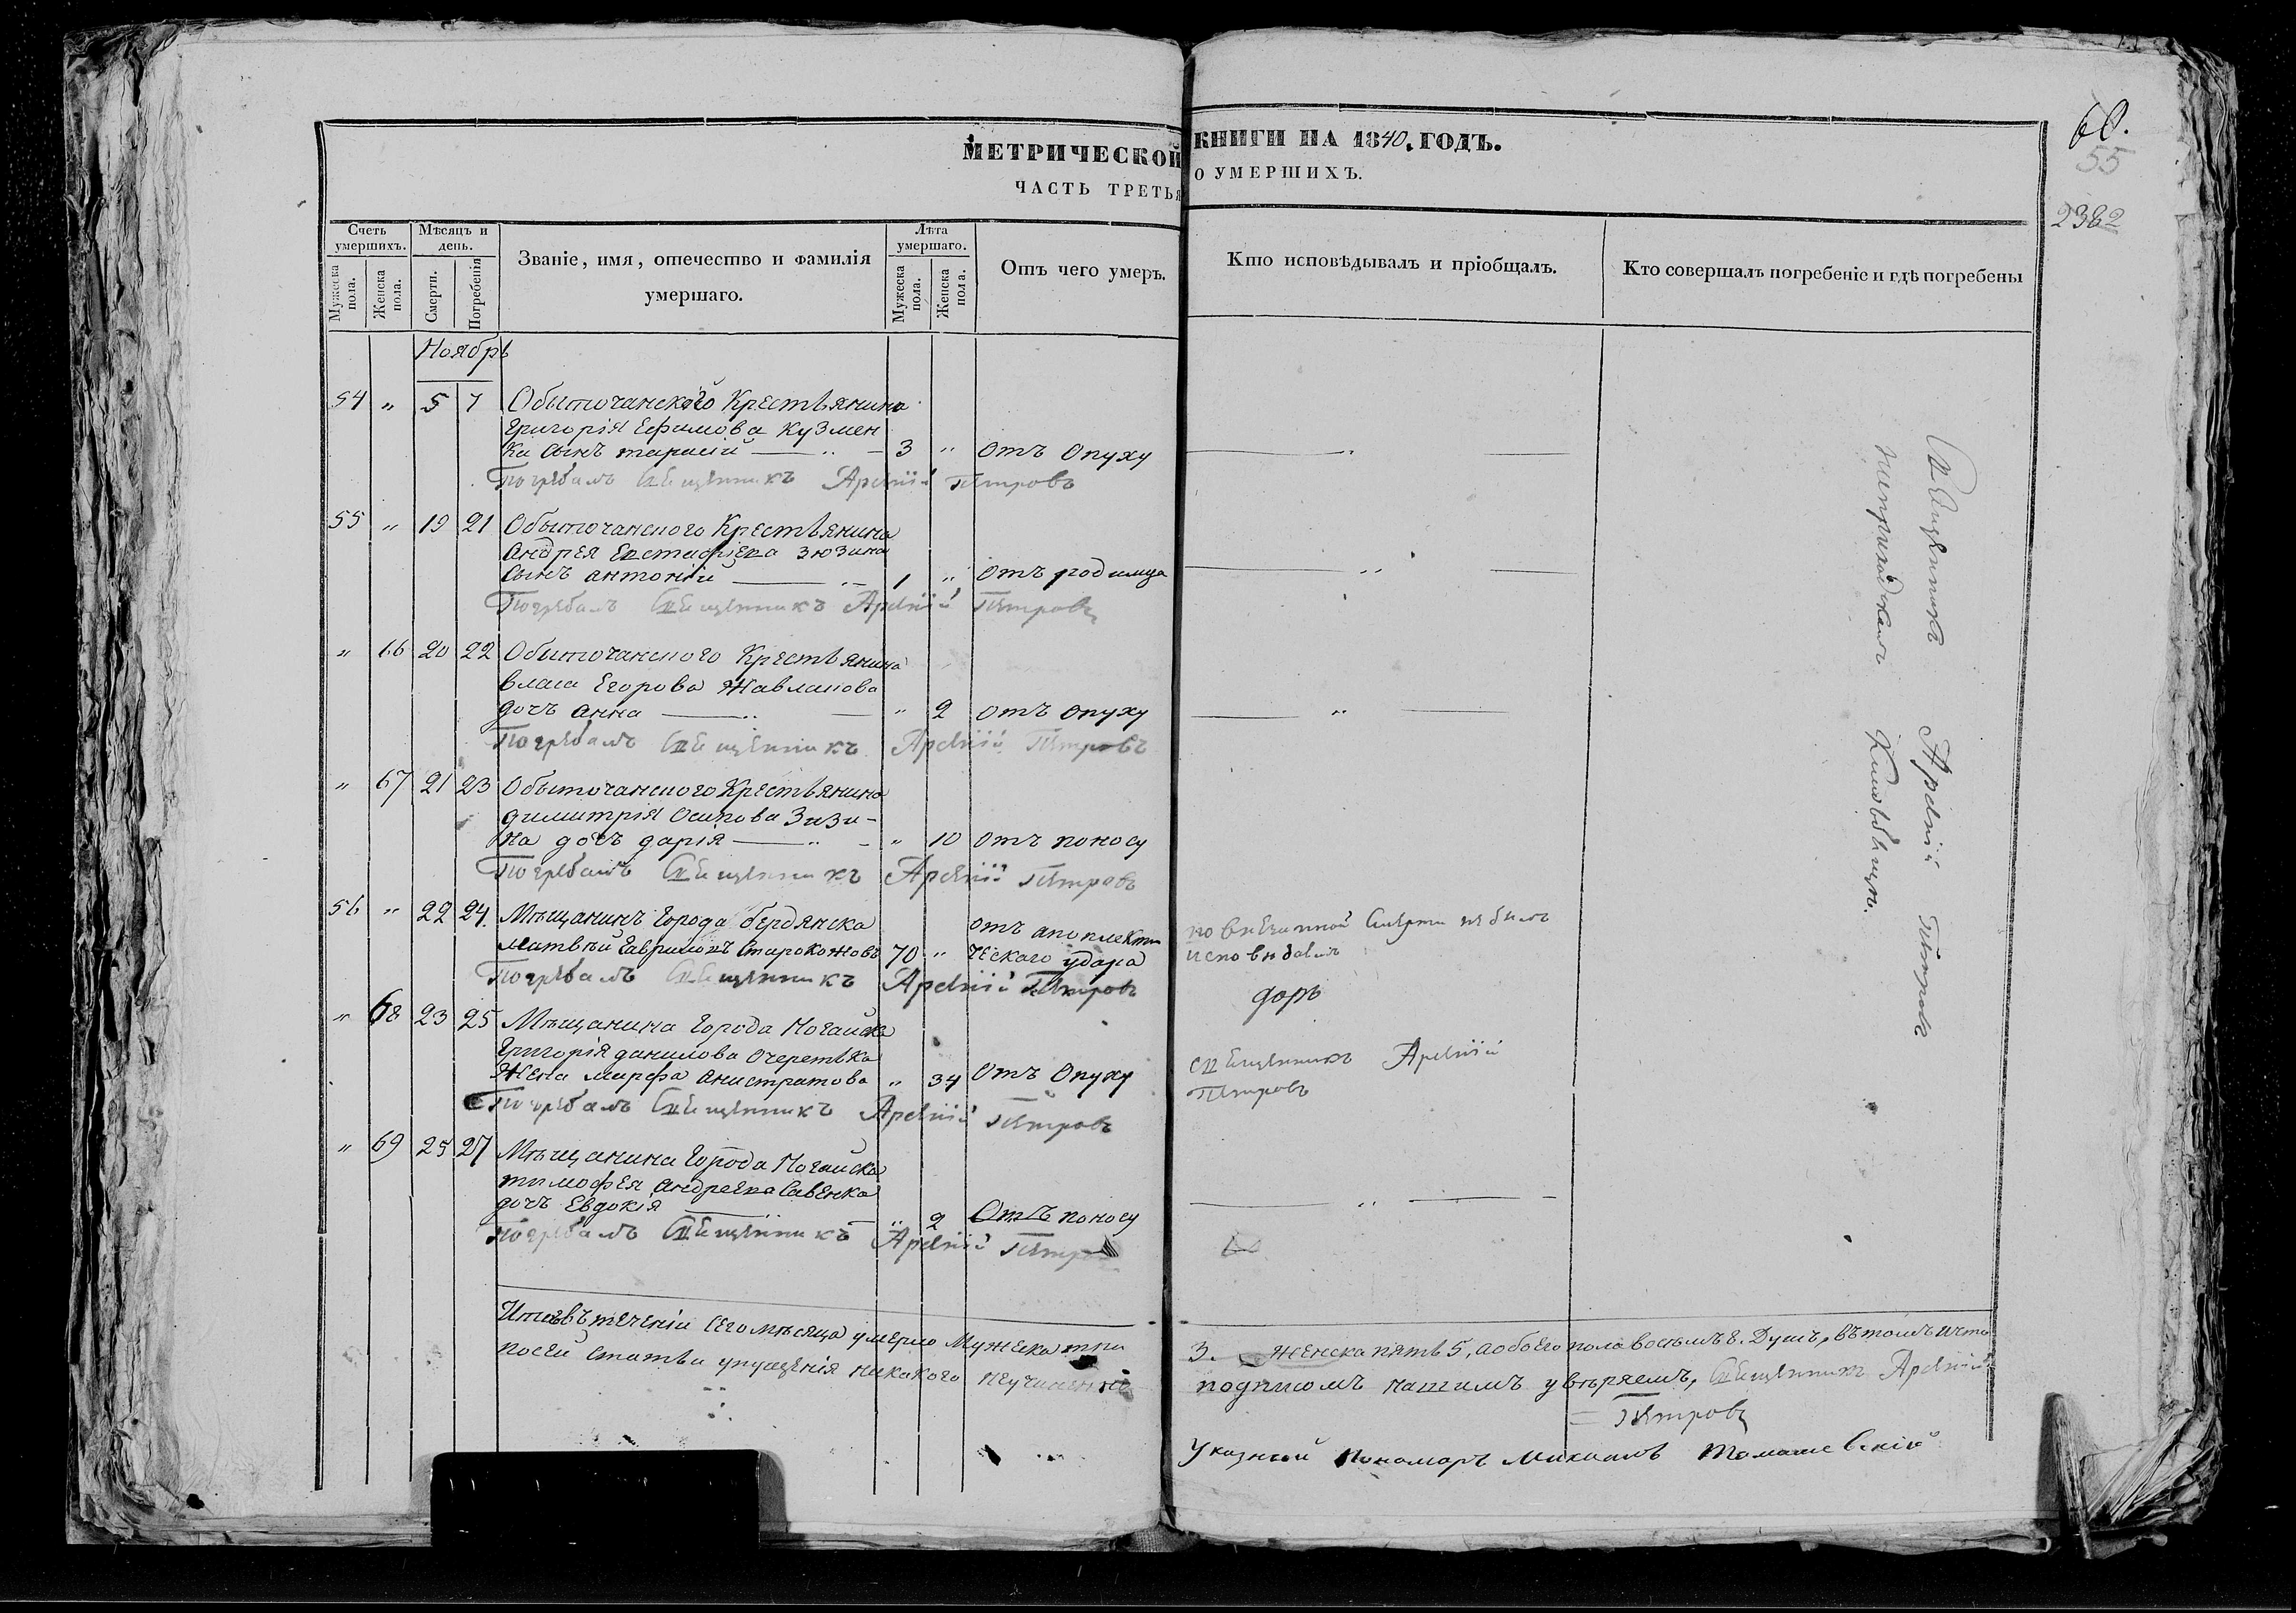 МЕТРИЧЕСКОЙ КНИГИ НА 1840. ГОДЪ.
ЧАСТЬ ТРЕТЬЯ О УМЕРШИХЪ.
60.
55
2382
Счетъ умершихъ.
Мужеска пола.
Женска пола.
Мѣсяцъ и день.
Смерти.
Погребенія
Званіе, имя, отечество и фамилія умершаго.
Лѣта умершаго.
Мужеска пола.
Женска пола.
Отъ чего умеръ.
Кто исповѣдывалъ и пріобщалъ.
Кто совершалъ погребеніе и гдѣ погребены
Ноябрь
54 " 5 7 Обыточанского Крестьянина
Григорія Ефимова Кузмен
ка Сынъ тарасій 3 " отъ Опуху
Погребалъ Священникъ Арсеній Петровъ
55 " 19 21 Обыточанского Крестьянина
Андрея Евстафіева Зюзина
Сынъ антоній 1 " отъ родимца
Погребалъ Священникъ Арсеній Петровъ
" 66 20 22 Обыточанского Крестьянина
власа Егорова Жавланова
дочь анна " 2 отъ опуху
Погребалъ Священникъ Арсеній Петровъ
" 67 21 23 Обыточанского Крестьянина
димитрія Осипова Зизи-
на дочь дарія " 10 отъ поносу
Погребалъ Священникъ Арсеній Петровъ
56 " 22 24. Мѣщанинъ Города бердянска
Матвѣй Гавриловъ Старокожовъ 70 " отъ апоплекти
ческаго удара
по внезапной Смерти не былъ
исповѣдалъ
Погребалъ Священникъ Арсеній Петровъ
" 68 23 25 Мѣщанина Города Ногайска
Григорія данилова Очеретька
Жена марфа анистратова " 34 Отъ Опуху
Священникъ Арсеній
Петровъ
Погребалъ Священникъ Арсеній Петровъ
" 69 25 27 Мѣщанина Города Ногайска
тимофея Андреева Савенка
дочь Евдокія " 2 Отъ поносу
Погребалъ Священникъ Арсеній
Священникъ Арсеній Петровъ
Итого въ теченіи сего мѣсяца умерло Мужеска три 3. Женска пять 5, а обоего пола восьмъ 8. Душъ, въ томъ что
по сей статьи упущенія никакого неучинено подписомъ нашимъ увѣряемъ, Священникъ Арсеній
Петровъ
Указный Пономарь Михаилъ Томашевскій